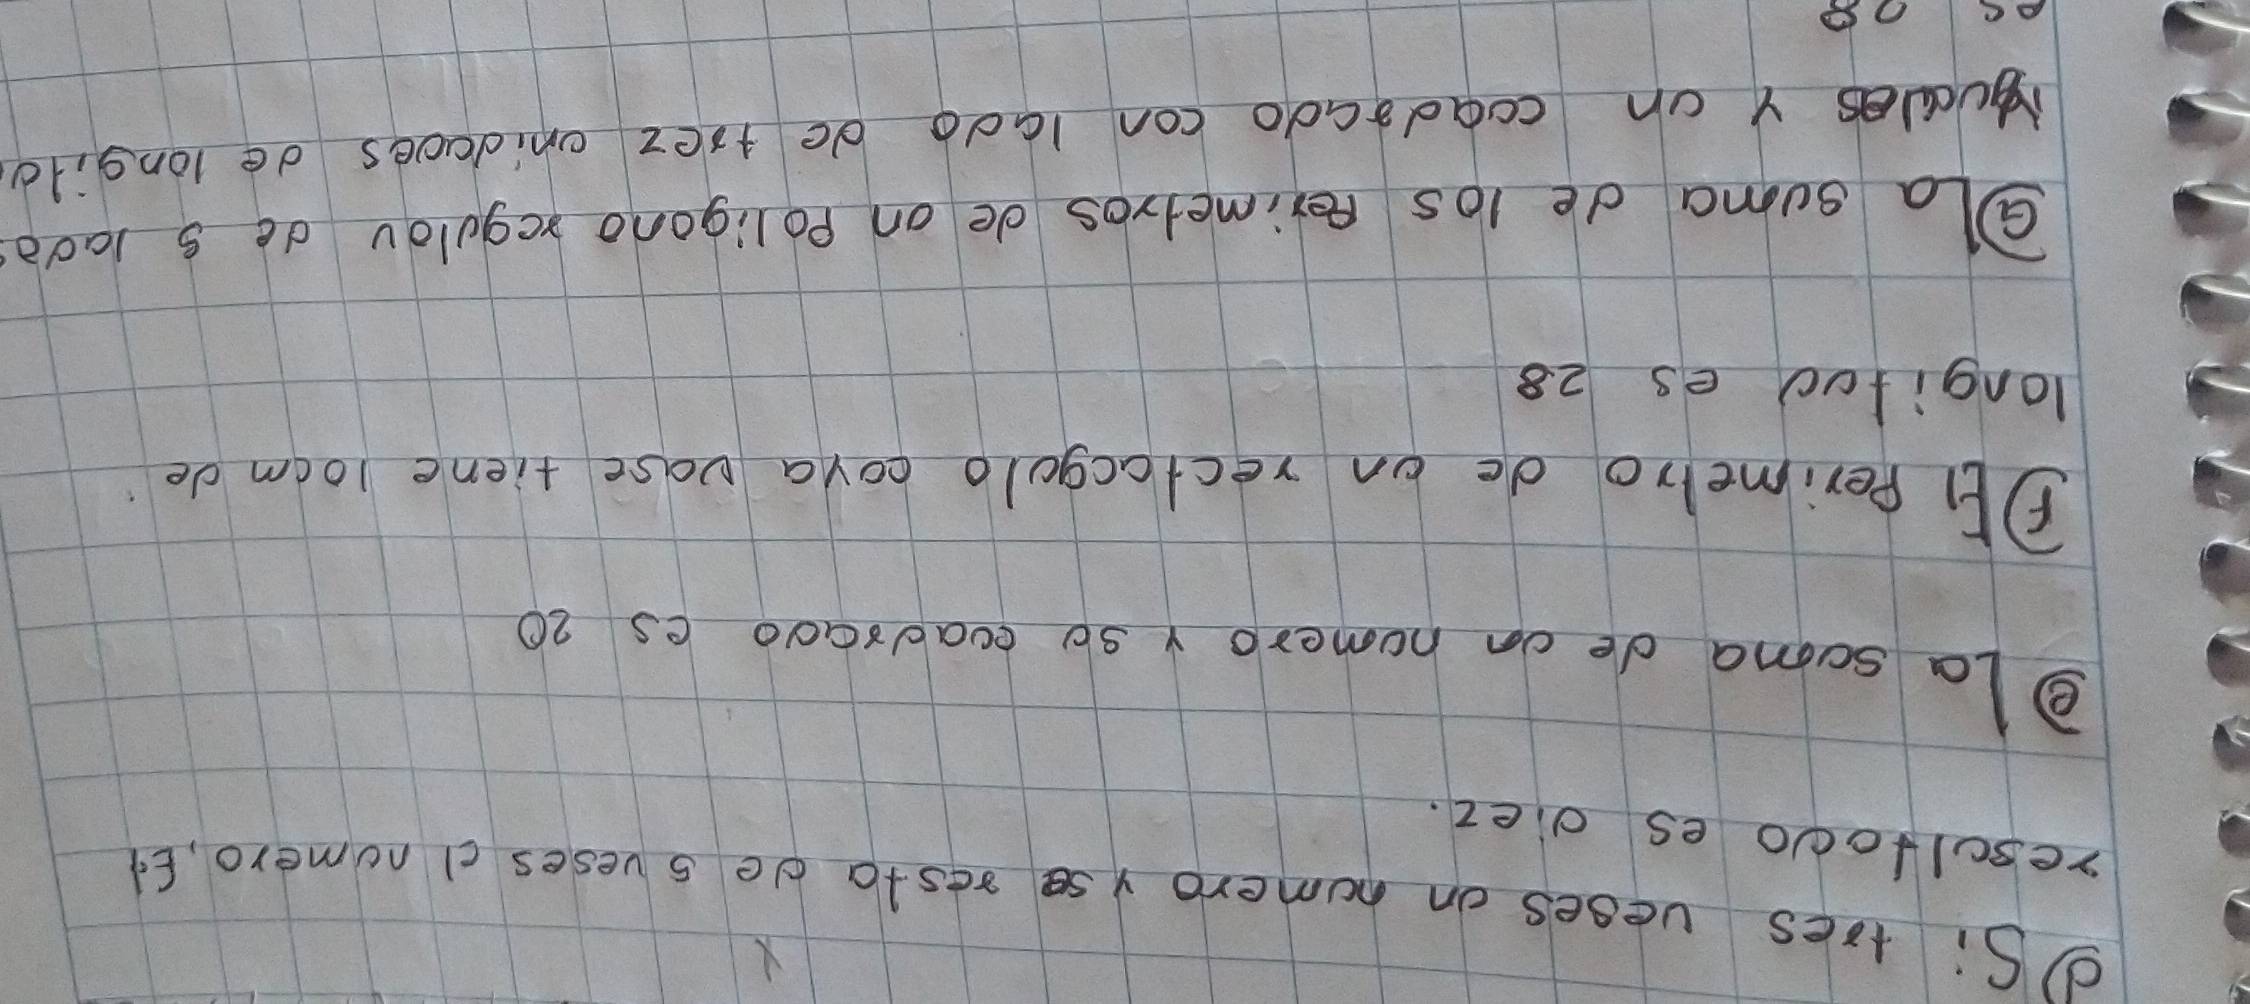 d) Si tres veses un numero y se resta de 5 veses el numero, El
resultado es diez.
e) La suma de un numero y su cuadrado es 20
F) El Perimetro de un rectacgulo cuya vase tiene 10cm de
longitud es 28
G) La suma de los Perimetros de un Poligono regulav de 5 lados
yguales y un cuadrado con lado de trez unidades de longitd
es 28